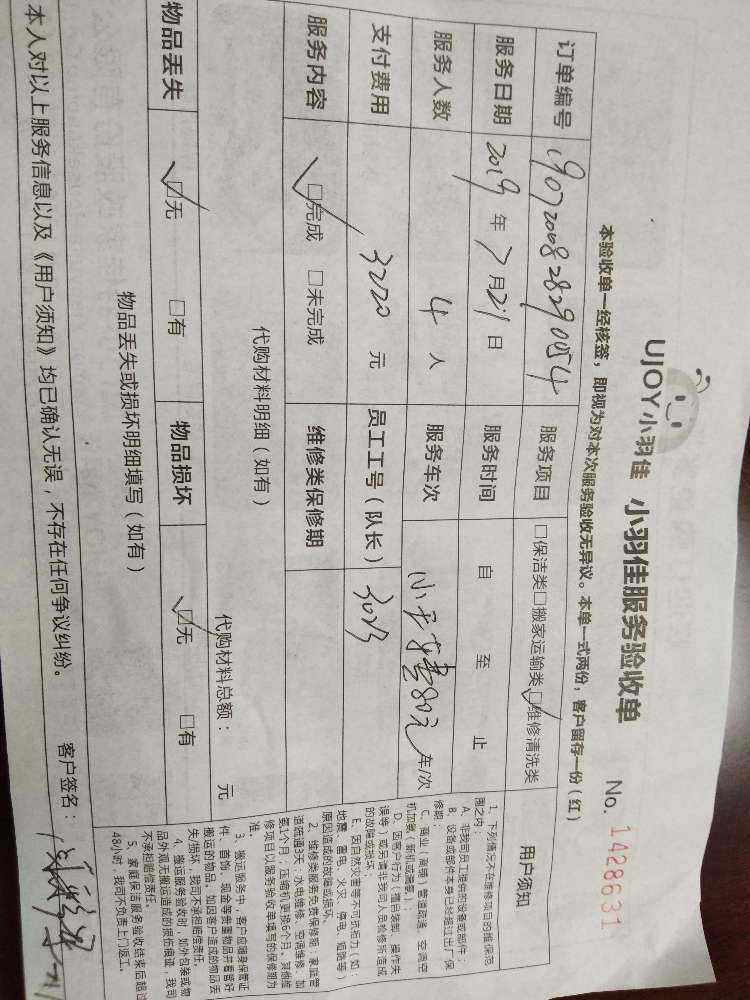 UJOY小羽佳 小羽佳服务验收单 No. 1428631
本验收单一经核签，即视为对本次服务验收无异议。本单一式两份，客户留存一份（红）
订单编号 服务项目 □保洁类□搬家运输类☑维修清洗类
服务日期 2019年7月21日 服务时间 自 至 止
服务人数 4人 服务车次 80元 车/次
支付费用 3220元 员工工号（队长） 3023
服务内容 ☑完成 □未完成 维修类保修期
代购材料明细（如有）
代购材料总额： 元
物品丢失 ☑无 □有 物品损坏 ☑无 □有
物品丢失或损坏明细填写（如有）
本人对以上服务信息以及《用户须知》均已确认无误，不存在任何争议纠纷。 客户签名：
用户须知
1、下列情况不在维修项目的维保范
围之内：
A、非我司员工提供的设备或部件；
B、设备或部件本身已经超过出厂保
修期；
C、商业（商铺）管道疏通、空调空
机加氟（新机或漏氟）
D、因客户行为（擅自装卸、操作失
误等）或另请非我司人员检修环造成
的故障或损坏。
E、因自然灾害等不可抗拒力（如：
地震、雷电、火灾、停电、短路等）
原因造成的故障或损坏。
2、维修类服务免费保修期：家庭管
道疏通3天；水电维修、空调维修、加
氨1个月；压缩机更换6个月，其他维
修项目以服务验收单填写的保修期为
准。
3、搬运服务中，客户应随身保管证
件、首饰、现金等贵重物品并看管好
搬运的物品，如因客户造成的物品丢
失/损坏，我司不承担赔偿责任。
4、搬运服务验收时，如外包装或物
品外观无搬运造成的损伤痕迹，我司
不承担赔偿责任。
5、家庭保洁服务验收结束后超过
48小时，我司不负责上门返工。